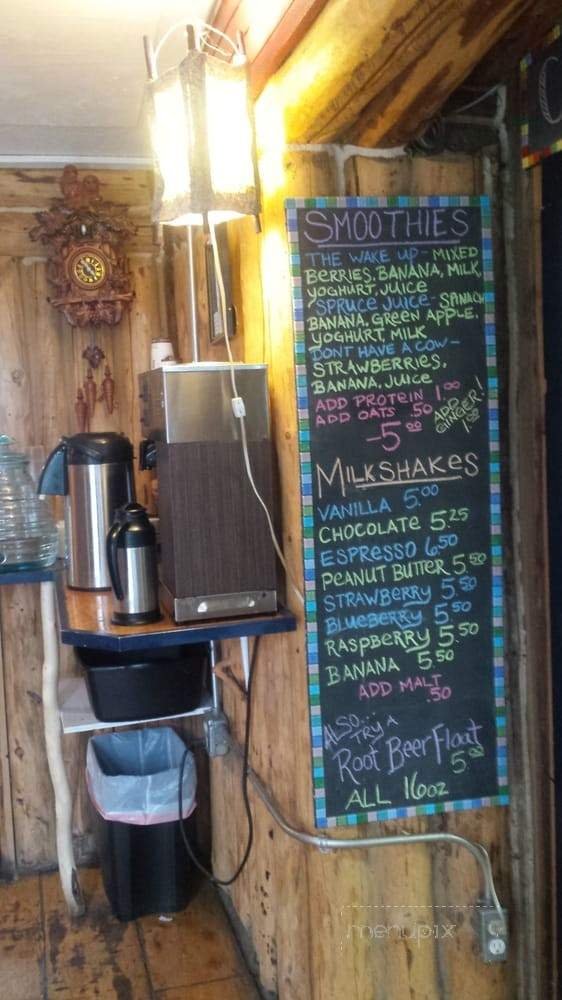 SMOOTHIES
THE WAKE UP - MIXED
BERRIES, BANANA, MILK,
YOGHURT, JUICE
SPRUCE JUICE - SPINACH,
BANANA, GREEN APPLE,
YOGHURT, MILK
DONT HAVE A COW -
STRAWBERRIES,
BANANA, JUICE
ADD PROTEIN 1.00
ADD OATS .50
ADD GINGER! 1.00
- 5.00
MILKSHAKES
VANILLA 5.00
CHOCOLATE 5.25
ESPRESSO 6.50
PEANUT BUTTER 5.50
STRAWBERRY 5.50
BLUEBERRY 5.50
RASPBERRY 5.50
BANANA 5.50
ADD MALT
.50
ALSO...
TRY A
Root Beer Float
5.00
ALL 16oz
menupix